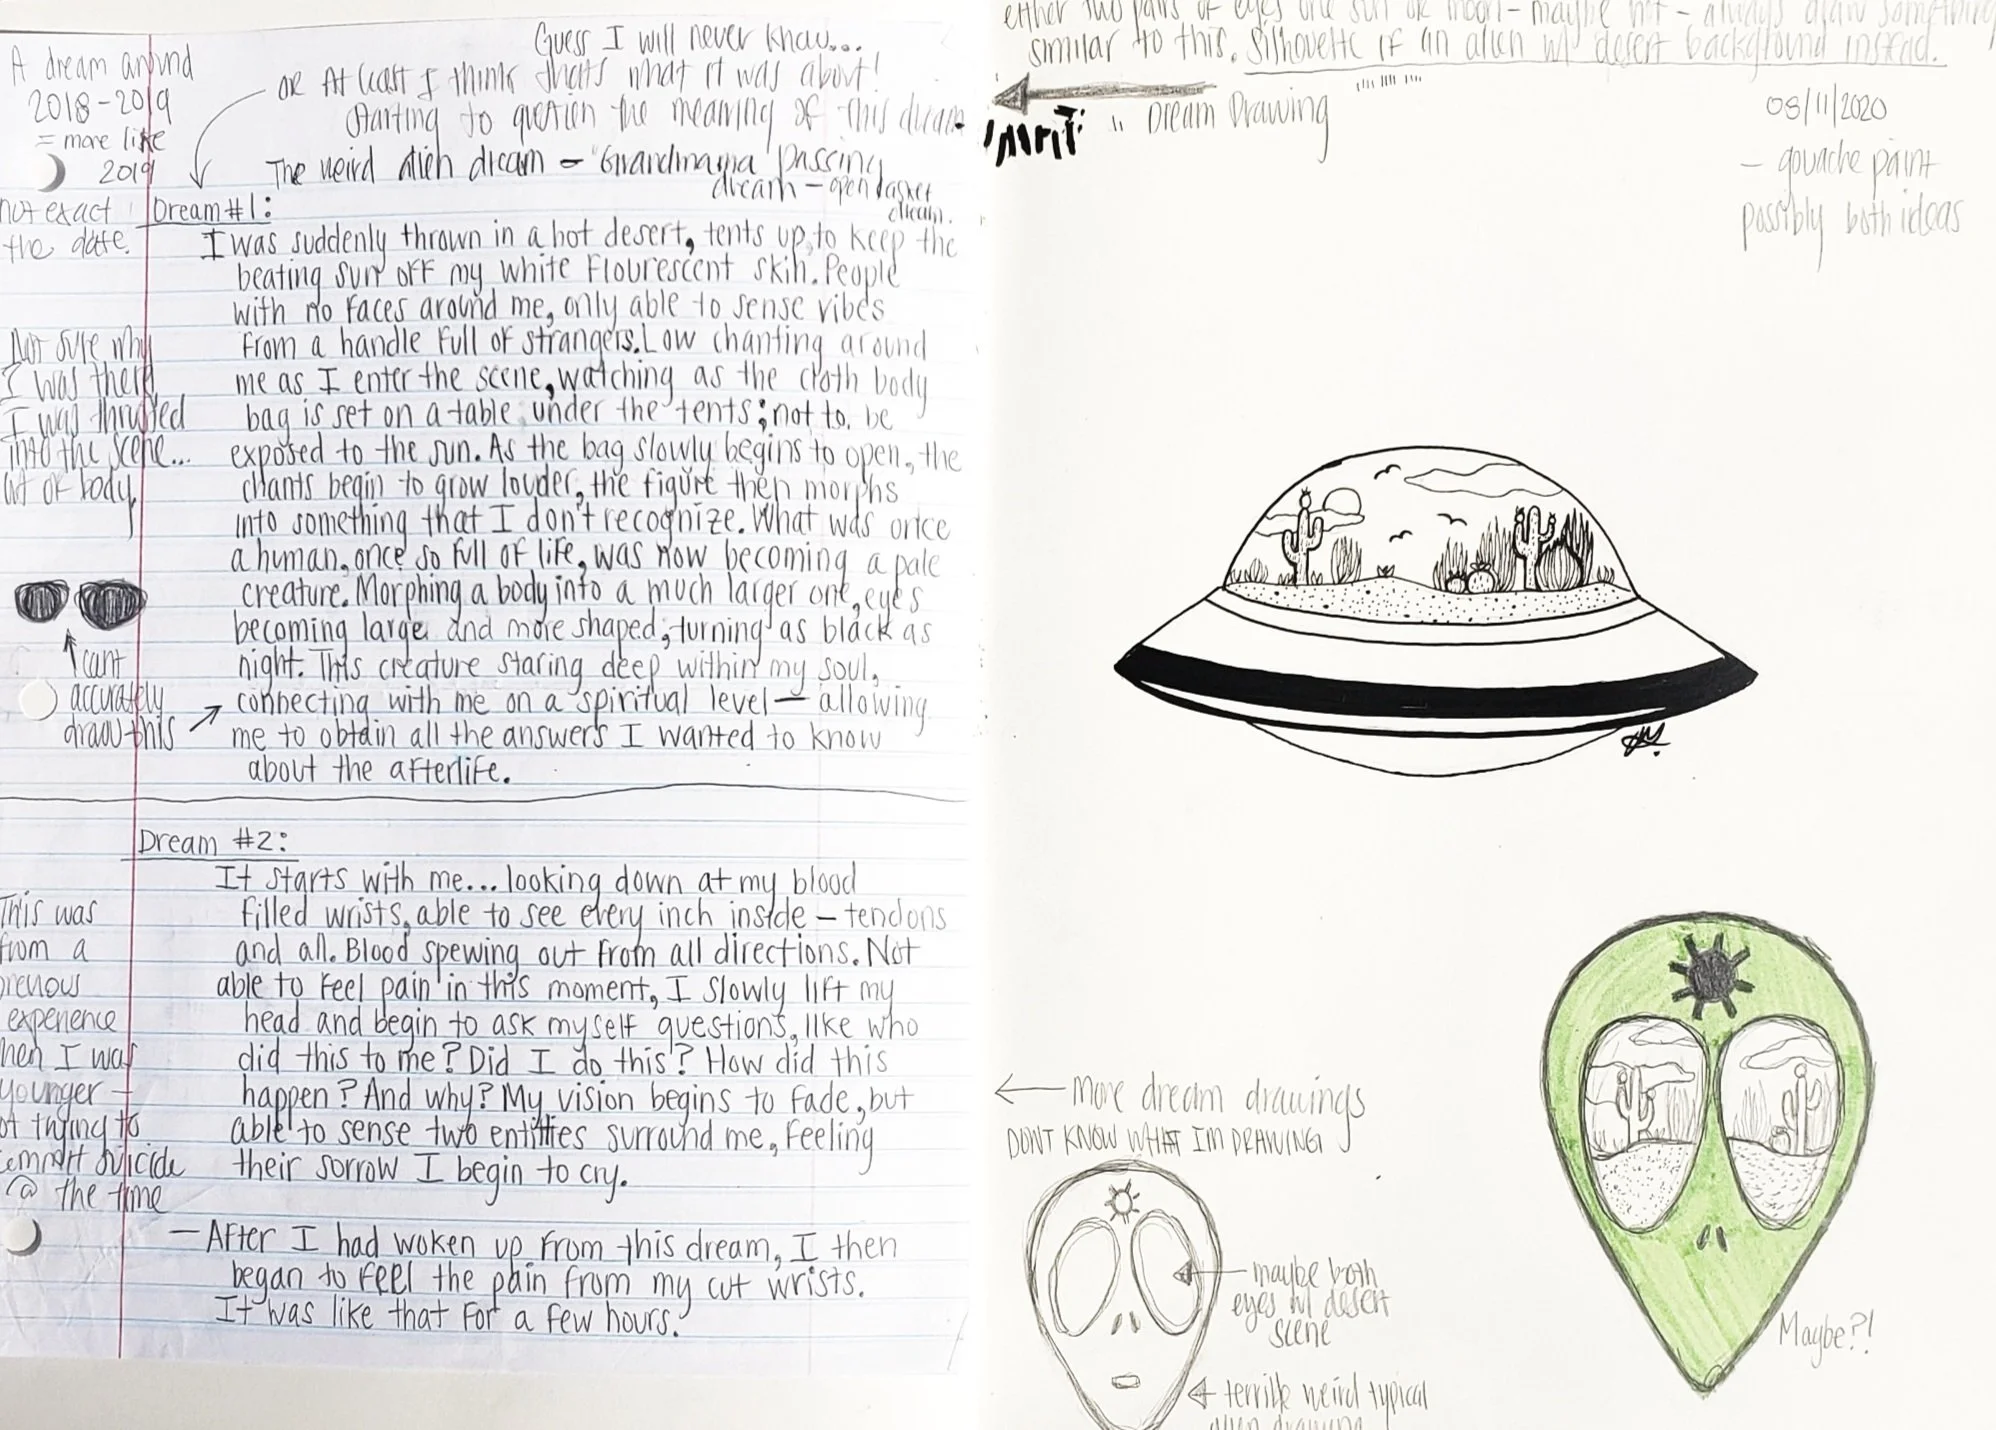 Guess I will never know...
or At least I think thats what it was about!
starting to question the meaning of this dream
The weird alien dream - "Grandmama passing
dream - open casket
dream.
A dream around
2018-2019
= more like
2019
not exact
the date.
Dream #1:
I was suddenly thrown in a hot desert, tents up, to keep the
beating sun off my white flourescent skin. People
with no faces around me, only able to sense vibes
from a handle full of strangers. Low chanting around
me as I enter the scene, watching as the cloth body
bag is set on a table under the tents; not to be
exposed to the sun. As the bag slowly begins to open, the
chants begin to grow louder, the figure then morphs
into something that I don't recognize. What was once
a human, once so full of life, was now becoming a pale
creature. Morphing a body into a much larger one, eyes
becoming large and more shaped, turning as black as
night. This creature staring deep within my soul,
connecting with me on a spiritual level — allowing
me to obtain all the answers I wanted to know
about the afterlife.
Not sure why
I was there,
I was thrusted
into the scene...
out of body
cant
accurately
draw this
Dream #2:
It starts with me... looking down at my blood
filled wrists, able to see every inch inside — tendons
and all. Blood spewing out from all directions. Not
able to feel pain in this moment, I slowly lift my
head and begin to ask myself questions, like who
did this to me? Did I do this? How did this
happen? And why? My vision begins to fade, but
able to sense two entities surround me, feeling
their sorrow I begin to cry.
— After I had woken up from this dream, I then
began to feel the pain from my cut wrists.
It was like that for a few hours.
This was
from a
previous
experience
when I was
younger —
not trying to
attempt suicide
@ the time
either two pairs of eyes one sun or moon - maybe not - always draw something
similar to this. Silhouette if an alien w/ desert background instead.
Dream Drawing
08/11/2020
— gouache paint
possibly both ideas
More dream drawings
DONT KNOW WHAT IM DRAWING
maybe both
eyes w/ desert
scene
terrible weird typical
alien drawing
Maybe?!